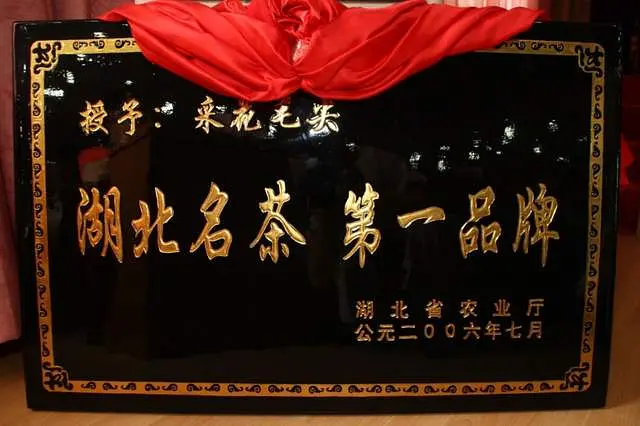 授予：采花毛尖
湖北名茶 第一品牌
湖北省农业厅
公元二00六年七月